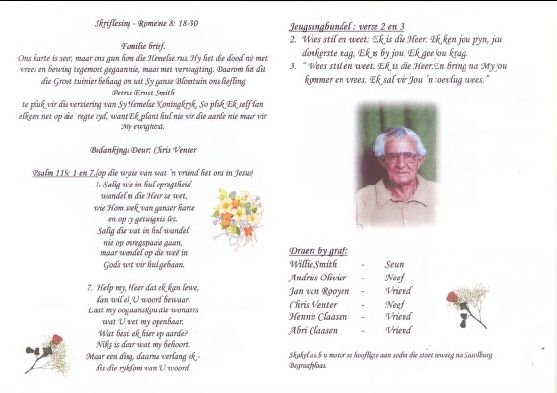 Skriflesing - Romeine 8: 18-30
Familie brief.
Ons harte is seer, maar ons gun hom die Hemelse rus. Hy het die dood nie met
vrees en bewing tegemoet gegaan nie, maar met verwagting. Daarom het dit
die Groot tuinier behaag om uit Sy ganse Blomtuin ons liefling
Petrus Ernst Smith
te pluk vir die versiering van Sy Hemelse Koningkryk. So pluk Ek self dan
elkeen net op die regte tyd, want Ek plant hul nie vir die aarde nie maar vir
My ewigheid.
Bedankings Deur: Chris Venter
Psalm 119: 1 en 7.(op die wyse van wat 'n vriend het ons in Jesus)
1. Salig wie in hul opregtheid
wandel in die Heer se wet,
wie Hom soek van ganser harte
en op sy getuignis let.
Salig die wat in hul wandel
nie op onregspaaie gaan,
maar wandel op die weë in
Gods wet vir hul gebaan.
7. Help my, Heer dat ek kan lewe,
dan wil ek U woord bewaar.
Laat my oog aanskou die wonders
wat U wet my openbaar.
Wat besit ek hier op aarde?
Niks is daar wat my behoort.
Maar een ding, daarna verlang ek -
dis die rykdom van U woord
Jeugsingbundel : verse 2 en 3
2. Wees stil en weet: Ek is die Heer. Ek ken jou pyn, jou
donkerste nag, Ek is by jou. Ek gee jou krag.
3. " Wees stil en weet: Ek is die Heer.En bring na My jou
kommer en vrees. Ek sal vir Jou 'n toevlug wees."
Draers by graf:
Willie Smith - Seun
Andries Olivier - Neef
Jan van Rooyen - Vriend
Chris Venter - Neef
Hennie Claasen - Vriend
Abri Claasen - Vriend
Skakel a.s.b u motor se hoofligte aan sodra die stoet weg na Sasolburg
Begraafplaas.